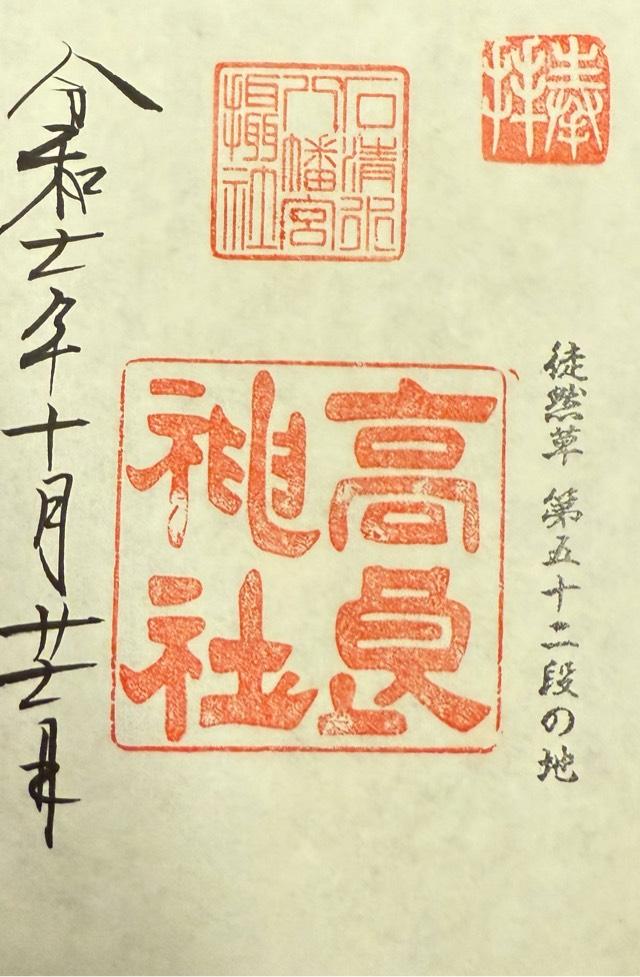 奉拝
徒然草 第五十二段の地
石清水
八幡宮
攝社
高良
神社
令和七年十月